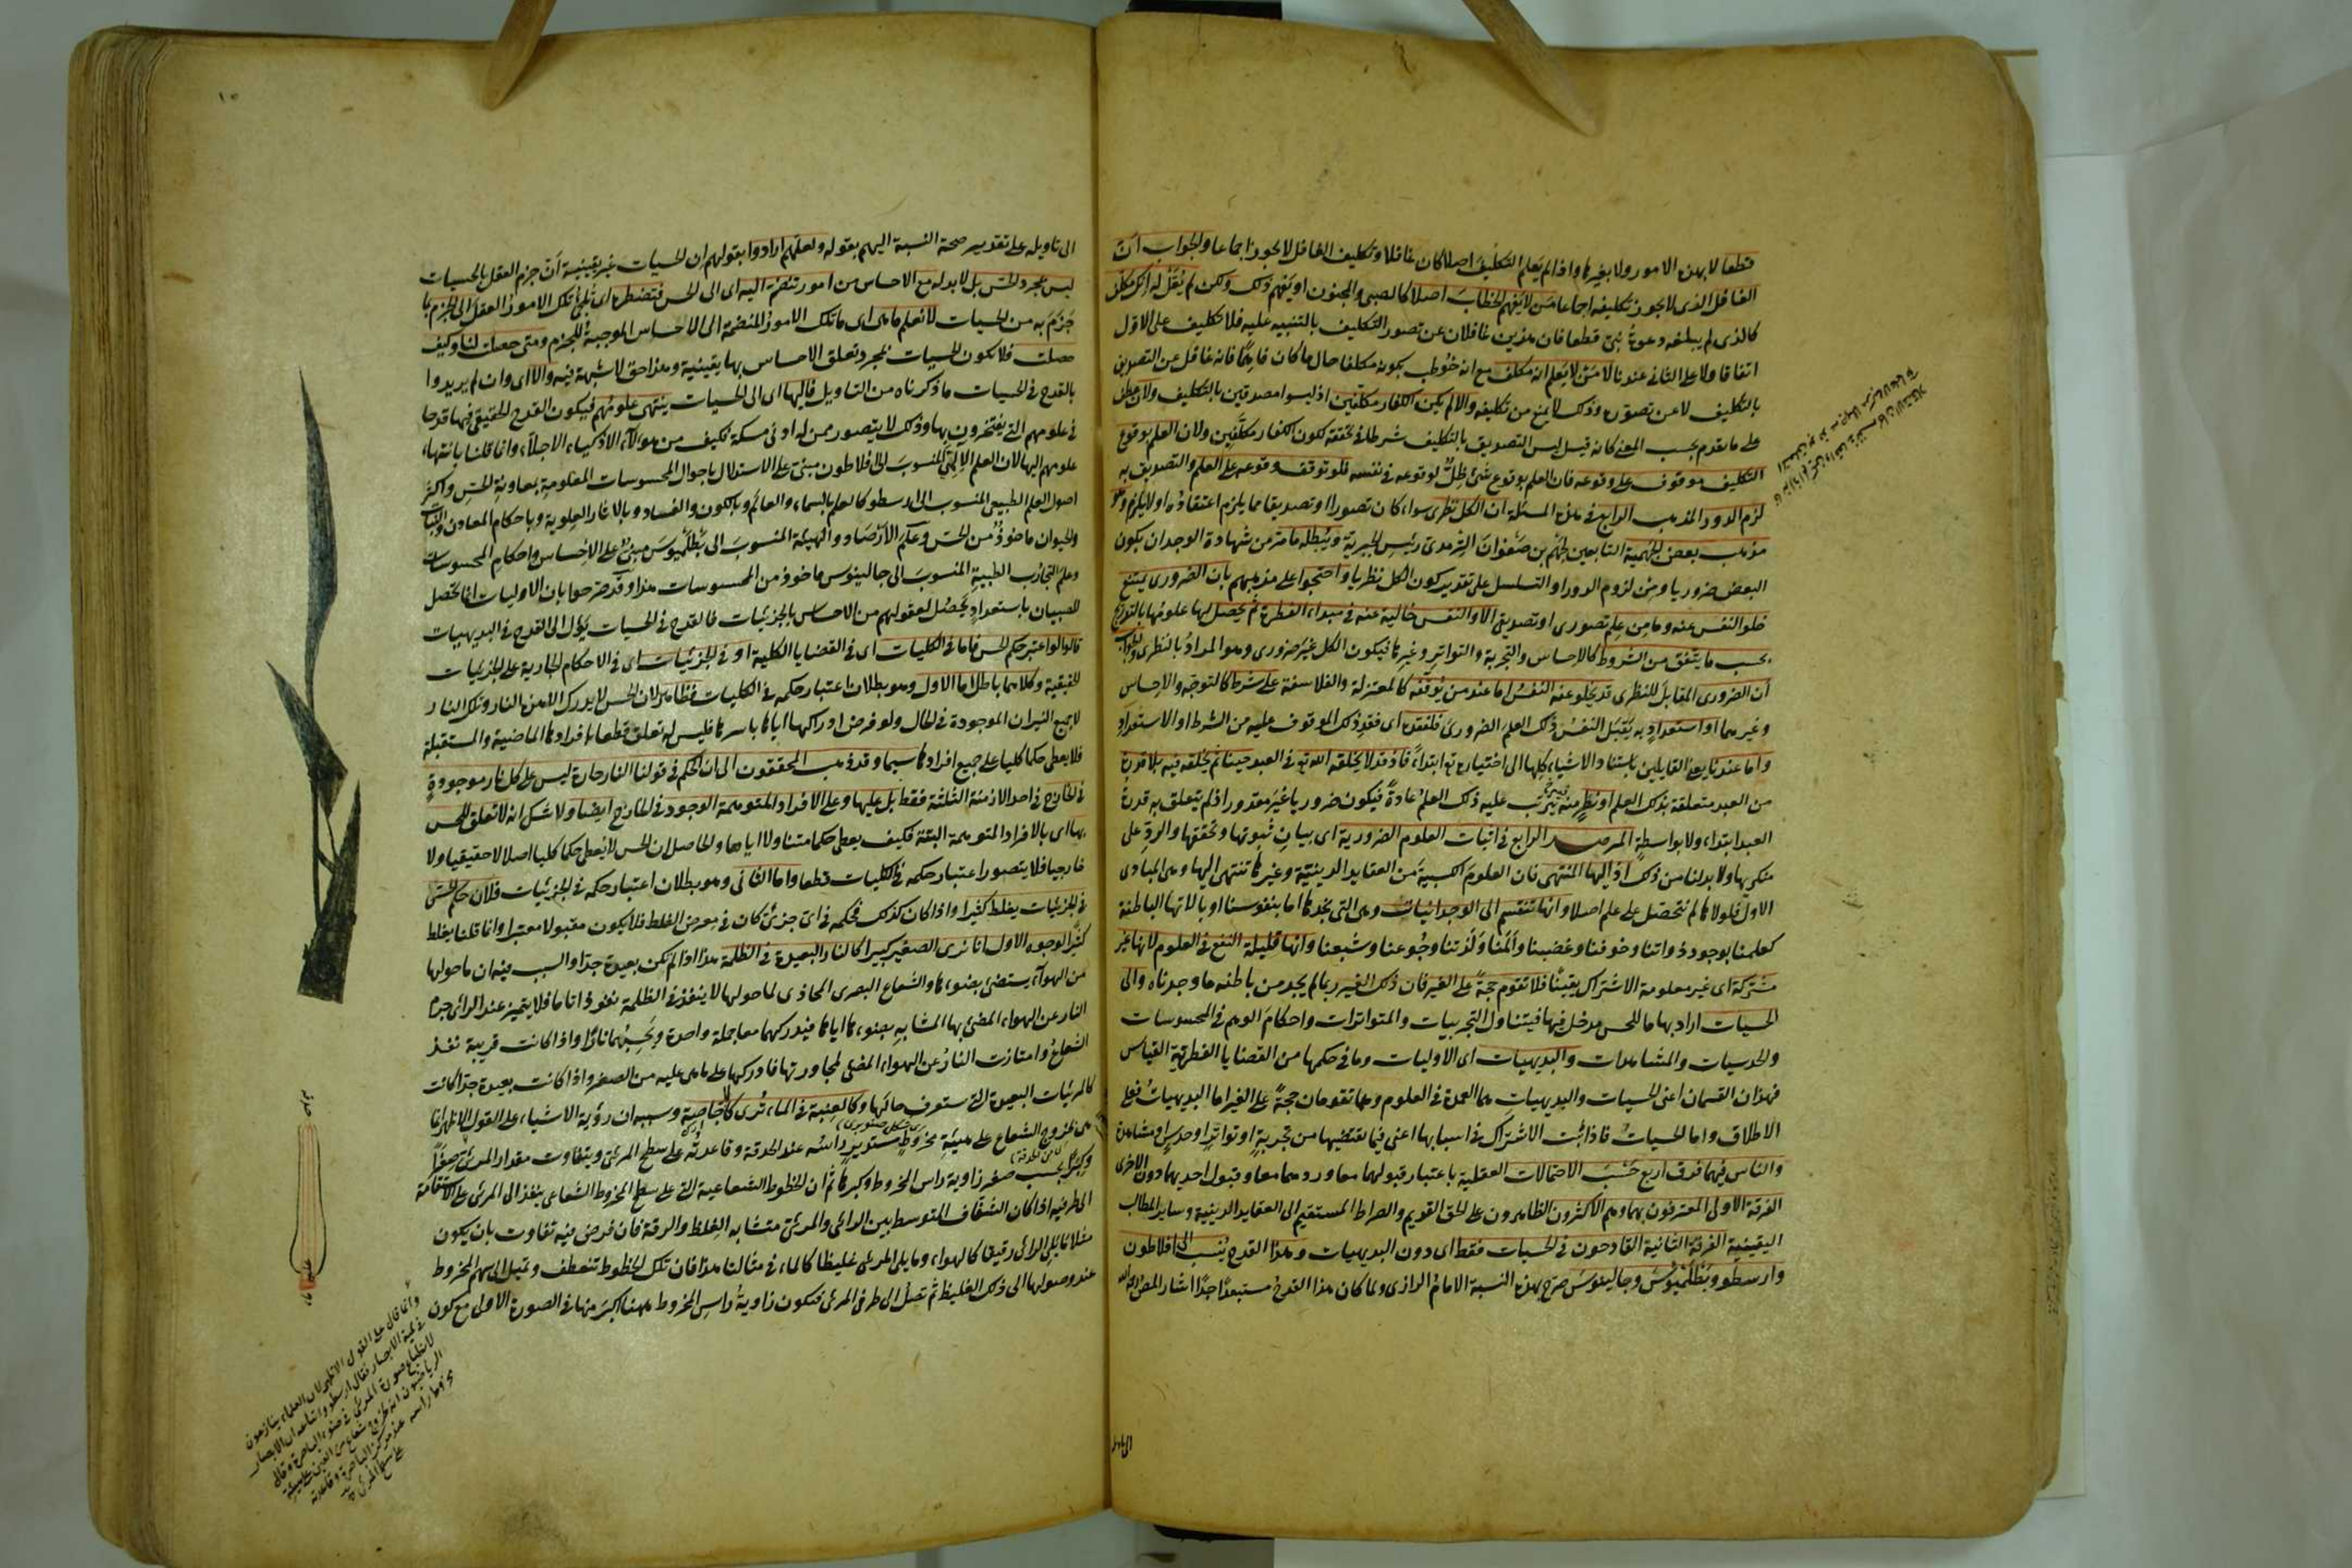 قطعا لا بهذه الامور ولا بغيرها واذا لم يعلم التكليف اصلا كان غافلا وتكليف الغافل لا يجوز اجماعا والجواب ان
الغافل الذى لا يجوز تكليفه اجماعا من لا يفهم الخطاب اصلا كالصبى والمجنون او يفهم ذلك ولكن لم يقل له انك مكلف
كالذى لم يبلغه دعوة نبى قطعا فان هذين غافلان عن تصور التكليف بالتنبيه عليه فلا تكليف على الاول
اتفاقا ولا على الثانى عندنا لا من لا يعلم انه مكلف مع انه خوطب بكونه مكلفا حال ما كان فاهما فانه غافل عن التصديق
بالتكليف لا عن تصوره وذلك لا يمنع من تكليفه والا لم يكن الكفار مكلفين اذ ليسوا مصدقين بالتكليف ولان
على ما تقدم بحسب المعنى كانه قيل ليس التصديق بالتكليف شرطا فى تحققه لكون الكفار مكلفين ولان العلم بوقوع
التكليف موقوف على وقوعه فان العلم بوقوع شئ ظل لوقوعه فى نفسه فلو توقف وقوعه على العلم والتصديق به
لزم الدور المذهب الرابع فى هذه المسئلة ان الكل نظرى سواء كان تصورا او تصديقا مما يلزم اعتقاده او لا يلزم وهو
مذهب بعض الجهمية التابعين لجهم بن صفوان الترمذى رئيس الجبرية ويبطله ما مر من شهادة الوجدان بكون
البعض ضروريا ومن لزوم الدور او التسلسل على تقدير كون الكل نظريا واحتجوا على مذهبهم بان الضرورى يمتنع
خلو النفس عنه وما من علم تصورى او تصديقى الا والنفس خالية عنه فى مبداء الفطرة ثم يحصل لها علومها بالتدريج
بحسب ما يتفق من الشروط كالاحساس والتجربة والتواتر وغيرها فيكون الكل غير ضرورى وهو المراد بالنظرى والجواب
ان الضرورى المقابل للنظرى قد يخلو عنه النفس اما عند من يوقفه كالمعتزلة والفلاسفة على شرط كالتوجه والاحساس
وغيرهما او استعداد به يقبل النفس ذلك العلم الضرورى فلفقده اى فقد ذلك الموقوف عليه من الشرط او الاستعداد
واما عندنا يعنى القايلين باستناد الاشياء كلها الى اختياره تع ابتداء فاذ قد لا يخلقه الله تع فى العبد حينا ثم يخلقه فيه بلا قدرة
من العبد متعلقة بذلك العلم او نظر منه يترتب عليه ذلك العلم عادة فيكون ضروريا غير مقدور اذ لم يتعلق به قدرة
العبد ابتداء ولا بواسطة المرصد الرابع فى اثبات العلوم الضرورية اى بيان ثبوتها وتحققها والرد على
منكريها ولا بد لنا من ذلك اذ اليها المنتهى فان العلوم الكسبية من العقايد الدينية وغيرها تنتهى اليها وهى المبادى
الاول فلولاها لم نتحصل على علم اصلا وانها تنقسم الى الوجدانيات وهى التى نجدها اما بنفوسنا او بالاتها الباطنة
كعلمنا بوجود ذواتنا وخوفنا وغضبنا والمنا ولذتنا وجوعنا وشبعنا وانها قليلة النفع فى العلوم لانها غير
مشتركة اى غير معلومة الاشتراك يقينا فلا تقوم حجة على الغير فان ذلك الغير ربما لم يجد من باطنه ما وجدناه والى
الحسيات اراد بها ما للحس مدخل فيها فيتناول التجربيات والمتواترات واحكام الوهم فى المحسوسات
والحدسيات والمشاهدات والبديهيات اى الاوليات وما فى حكمها من القضايا الفطرية القياس
فهذان القسمان اعنى الحسيات والبديهيات هما العمدة فى العلوم وهما تقومان حجة على الغير اما البديهيات فعلى
الاطلاق واما الحسيات فاذا ثبت الاشتراك فى اسبابها اعنى فيما يقتضيها من تجربة او تواتر او حدس او مشاهدة
والناس فيهما فرق اربع حسب الاحتمالات العقلية باعتبار قبولهما معا وردهما معا وقبول احديهما دون الاخرى
الفرقة الاولى المعترفون بهما وهم الاكثرون الظاهرون على الحق القويم والصراط المستقيم الى العقايد الدينية وساير المطالب
اليقينية الفرقة الثانية القادحون فى الحسيات فقط اى دون البديهيات وهذا القدح ينسب الى افلاطون
وارسطو وبطلميوس وجالينوس صرح بهذه النسبة الامام الرازى ولما كان هذا القدح مستبعدا جدا اشار المص
١٥
الى تاويله على تقدير صحة النسبة اليهم بقوله ولعلهم ارادوا بقولهم ان الحسيات غير يقينية ان جزم العقل بالحسيات
ليس بمجرد الحس بل لا بد له مع الاحساس من امور تنضم اليه اى الى الحس فتضطره اى تلجئ تلك الامور العقل الى الجزم بما
جزم به من الحسيات لا نعلم ما هى اى ما تلك الامور المنضمة الى الاحساس الموجبة للجزم ومتى حصلت لنا وكيف
حصلت فلا تكون الحسيات بمجرد تعلق الاحساس بها يقينية وهذا حق لا شبهة فيه والا اى وان لم يريدوا
بالقدح فى الحسيات ما ذكرناه من التاويل فاليها اى الى الحسيات ينتهى علومهم فيكون القدح الحقيقى فيها قدحا
فى علومهم التى يفتخرون بها وذلك لا يتصور ممن له ادنى مسكة فكيف من هؤلاء الاذكياء الاجلاء وانما قلنا بانتهاء
علومهم اليها لان العلم الالهى المنسوب الى افلاطون مبنى على الاستدلال باحوال المحسوسات المعلومة بمعاونة الحس واكثر
اصول العلم الطبيعى المنسوب الى ارسطو كالعلم بالسماء والعالم وبالكون والفساد وبالاثار العلوية وباحكام المعادن والنبات
والحيوان ماخوذ من الحس وعلم الارصاد والهيئة المنسوب الى بطلميوس مبنى على الاحساس واحكام المحسوسات
وعلم التجارب الطبية المنسوب الى جالينوس ماخوذ من المحسوسات هذا وقد صرحوا بان الاوليات انما تحصل
للصبيان باستعداد يحصل لعقولهم من الاحساس بالجزئيات فالقدح فى الحسيات يؤل الى القدح فى البديهيات
قالوا لو اعتبر حكم الحس فاما فى الكليات اى فى القضايا الكلية او فى الجزئيات اى فى الاحكام الجارية على الجزئيات
الحقيقية وكلاهما باطل اما الاول وهو بطلان اعتبار حكمه فى الكليات فظاهر لان الحس لا يدرك الا هذه النار وتلك النار
لا جميع النيران الموجودة فى الحال ولو فرض ادراكها اياها باسرها فليس له تعلق قطعا بافرادها الماضية والمستقبلة
فلا يعطى حكما كليا على جميع افرادها سيما وقد ذهب المحققون الى ان الحكم فى قولنا النار حارة ليس على كل نار موجودة
فى الخارج فى احد الازمنة الثلثة فقط بل عليها وعلى الافراد المتوهمة الوجود فى الخارج ايضا ولا شك انه لا تعلق للحس
بها اى بالافراد المتوهمة البتة فكيف يعطى حكما متناولا اياها والحاصل ان الحس لا يعطى حكما كليا اصلا لا حقيقيا ولا
خارجيا فلا يتصور اعتبار حكمه فى الكليات قطعا واما الثانى وهو بطلان اعتبار حكمه فى الجزئيات فلان حكم الحس
فى الجزئيات يغلط كثيرا واذا كان كذلك فحكمه فى اى جزئى كان فى معرض الغلط فلا يكون مقبولا معتبرا وانما قلنا يغلط
كثيرا لوجوه الاول انا نرى الصغير كبيرا كالنار البعيدة فى الظلمة هذا اذا لم تكن بعيدة جدا والسبب فيه ان ما حولها
من الهواء يستضئ بضوءها والشعاع البصرى المحاذى لما حولها لا ينفذ فى الظلمة نفوذا تاما فلا يتميز عند الرائى جرم
النار عن الهواء المضئ بها المشابه بضوءها اياها فيدركهما معا جملة واحدة ويحسبهما نارا واذا كانت قريبة نفذ
الشعاع وامتازت النار عن الهواء المضئ لمجاورتها فادركها على ما هى عليه من الصغر واذا كانت بعيدة جدا كانت
كالمرئيات البعيدة التى ستعرف حالها وكالعنبة فى الماء ترى كالاجاصة وسببه ان رؤية الاشياء على القول الاظهر انما
هى لخروج الشعاع على هيئة مخروط مستدير راسه عند الحدقة وقاعدته على سطح المرئى ويتفاوت مقدار المرئى صغرا
وكبرا بحسب صغر زاوية راس المخروط وكبرها ثم ان الخطوط الشعاعية التى على سطح المخروط الشعاعى ينفذ الى المرئى على الاستقامة
الى طرفيه اذا كان الشفاف المتوسط بين الرائى والمرئى متشابه الغلظ والرقة فان فرض فيه تفاوت بان يكون
مثلا ما يلى الرائى رقيقا كالهواء وما يلى المرئى غليظا كالماء فى مثالنا هذا فان تلك الخطوط تنعطف وتميل الى سهم المخروط
عند وصولها الى ذلك الغليظ ثم تصل الى طرفى المرئى فتكون زاوية راس المخروط ههنا اكبر منها فى الصورة الاولى مع كون
وانما قال على القول الاظهر لان العلماء يتنازعون